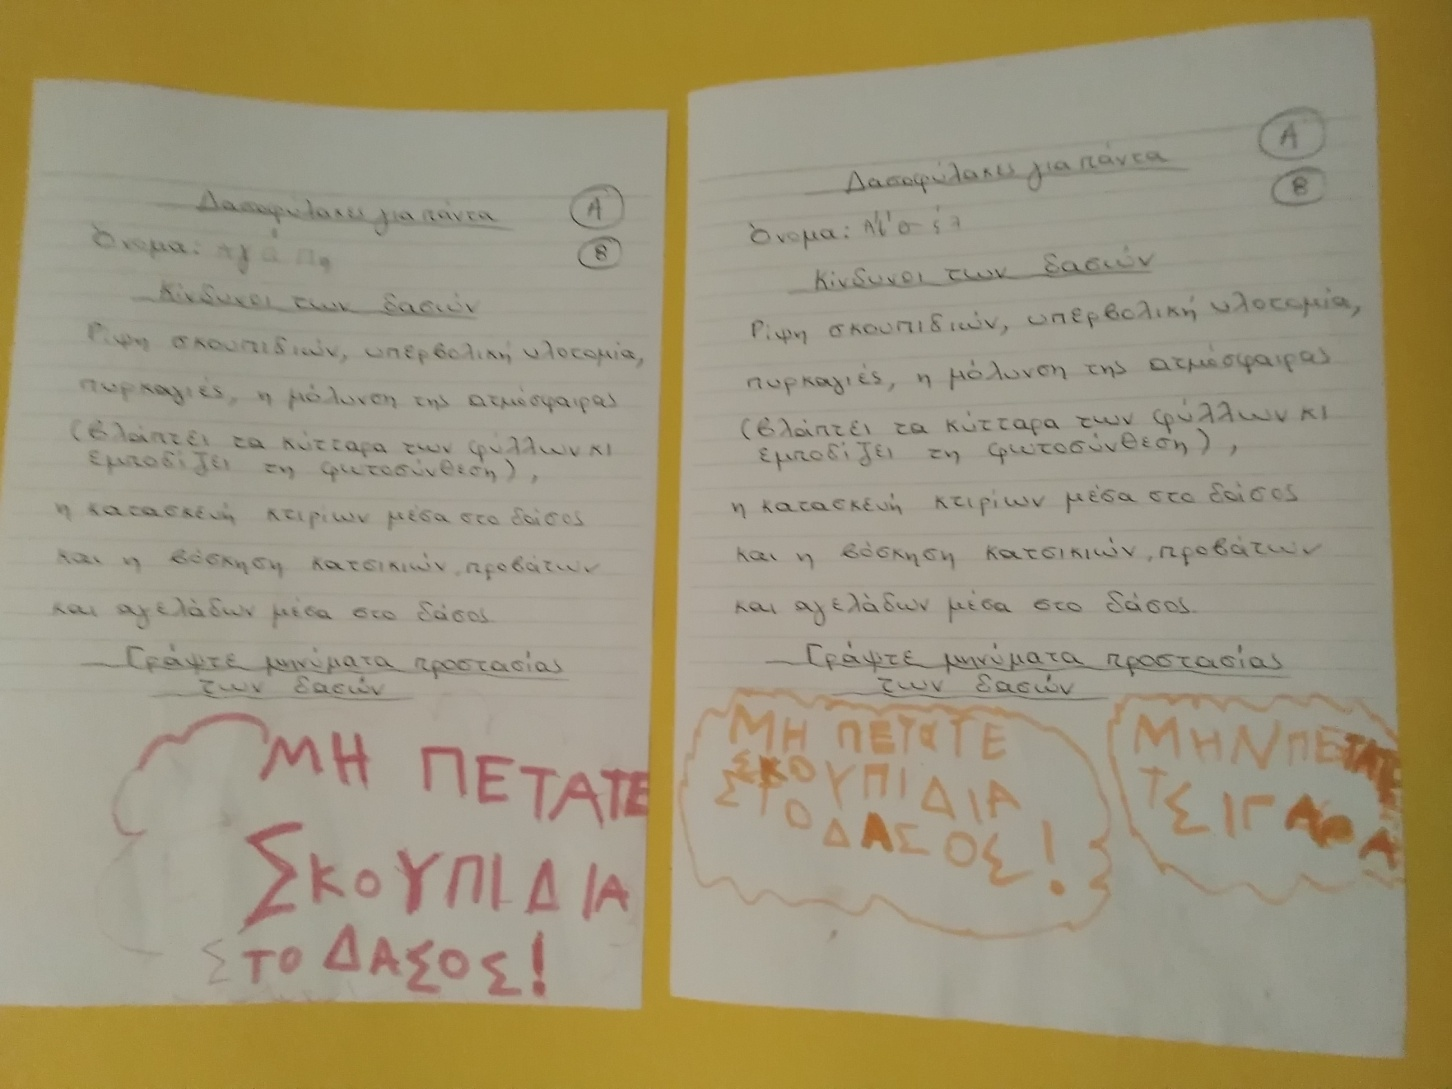 Δασοφύλακες για πάντα
Α
Β
Όνομα: Αγάπη
Κίνδυνοι των δασών
Ρίψη σκουπιδιών, υπερβολική υλοτομία,
πυρκαγιές, η μόλυνση της ατμόσφαιρας
(βλάπτει τα κύτταρα των φύλλων κι
εμποδίζει τη φωτοσύνθεση),
η κατασκευή κτιρίων μέσα στο δάσος
και η βόσκηση κατσικιών, προβάτων
και αγελάδων μέσα στο δάσος.
Γράψτε μηνύματα προστασίας
των δασών
ΜΗ ΠΕΤΑΤΕ
ΣΚΟΥΠΙΔΙΑ
ΣΤΟ ΔΑΣΟΣ!
Δασοφύλακες για πάντα
Α
Β
Όνομα:
Κίνδυνοι των δασών
Ρίψη σκουπιδιών, υπερβολική υλοτομία,
πυρκαγιές, η μόλυνση της ατμόσφαιρας
(βλάπτει τα κύτταρα των φύλλων κι
εμποδίζει τη φωτοσύνθεση),
η κατασκευή κτιρίων μέσα στο δάσος
και η βόσκηση κατσικιών, προβάτων
και αγελάδων μέσα στο δάσος.
Γράψτε μηνύματα προστασίας
των δασών
ΜΗ ΠΕΤΑΤΕ
ΣΚΟΥΠΙΔΙΑ
ΣΤΟ ΔΑΣΟΣ!
ΜΗΝ ΠΕΤΑΤΕ
ΤΣΙΓΑΡΑ